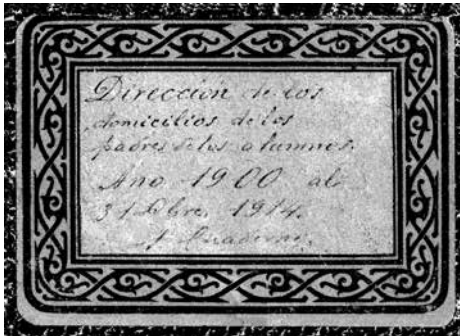 Dirección de los
domicilios de los
padres de los alumnos.
Año 1900 al
31 Dbre. 1914.
1 Cuaderno.